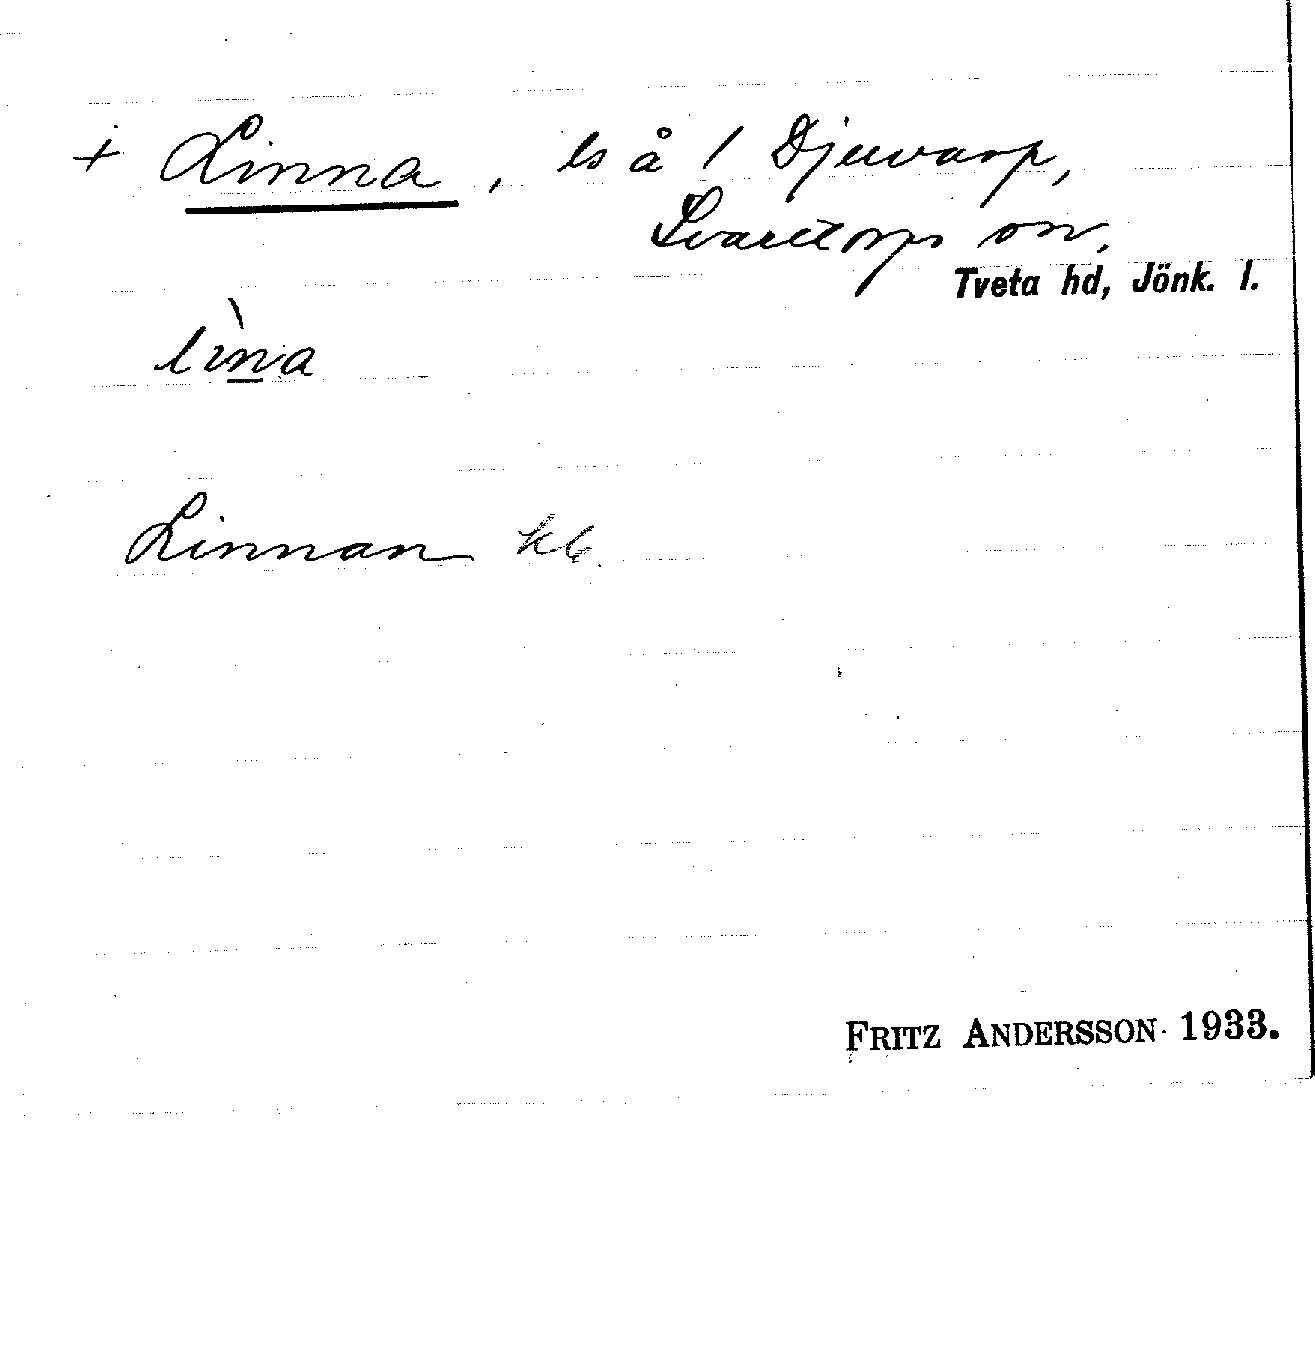 + Linna, ls å 1 Djuvarp,
Svarttorps sn,
Tveta hd, Jönk. l.
lìna
Linnan kb.
FRITZ ANDERSSON 1933.